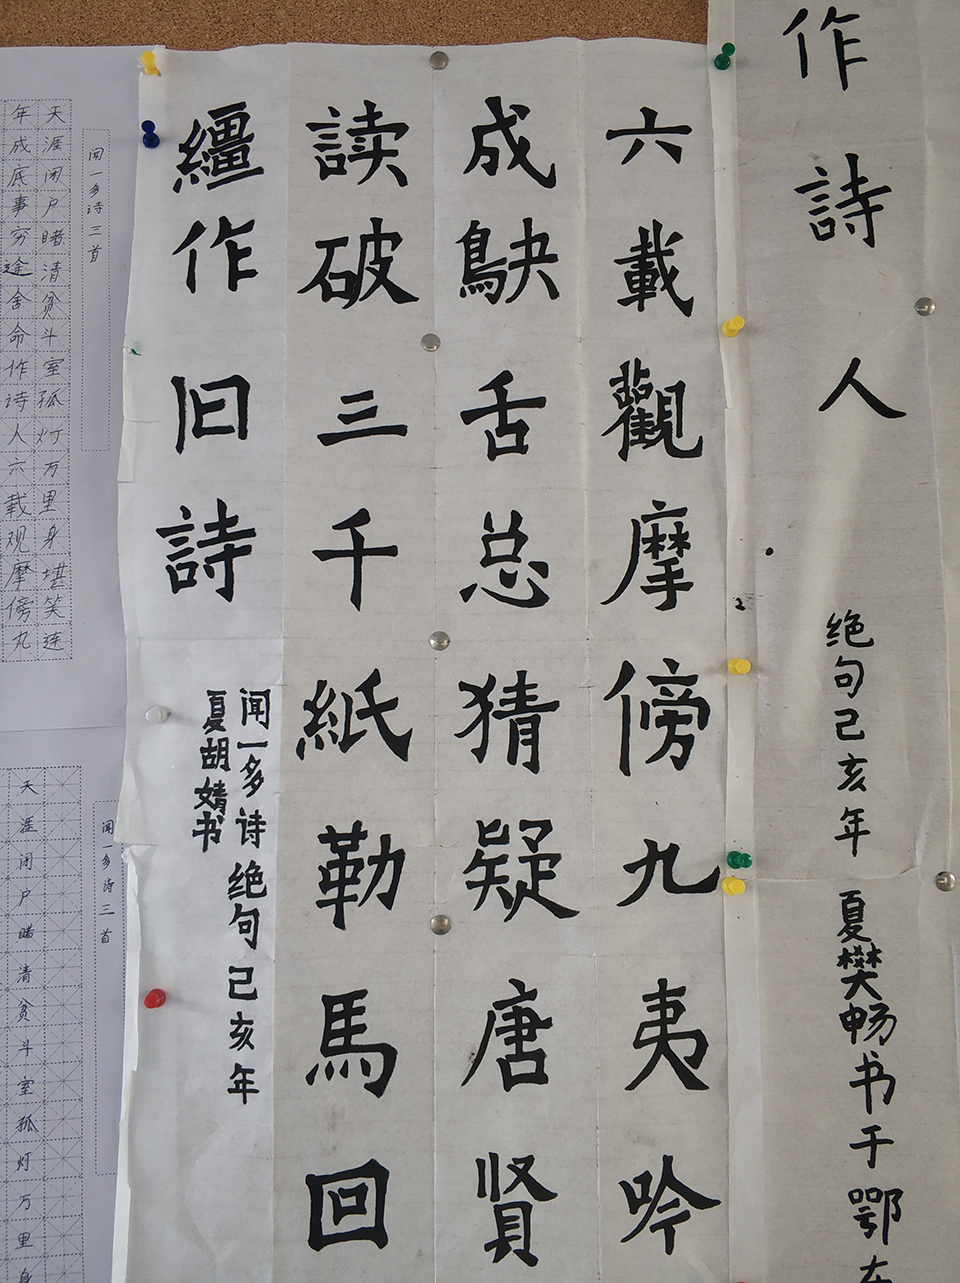 作詩人
绝句己亥年
夏樊畅书于鄂
六載觀摩傍九夷吟
成鴃舌总猜疑唐贤
读破三千紙勒馬回
繮作旧詩
闻一多诗绝句己亥年
夏胡婧书
闻一多诗三首
天涯闭户睹清贫斗室孤灯万里身堪笑连
年成底事穷途舍命作诗人六载观摩傍九
闻一多诗三首
天涯闭户睹清贫斗室孤灯万里身